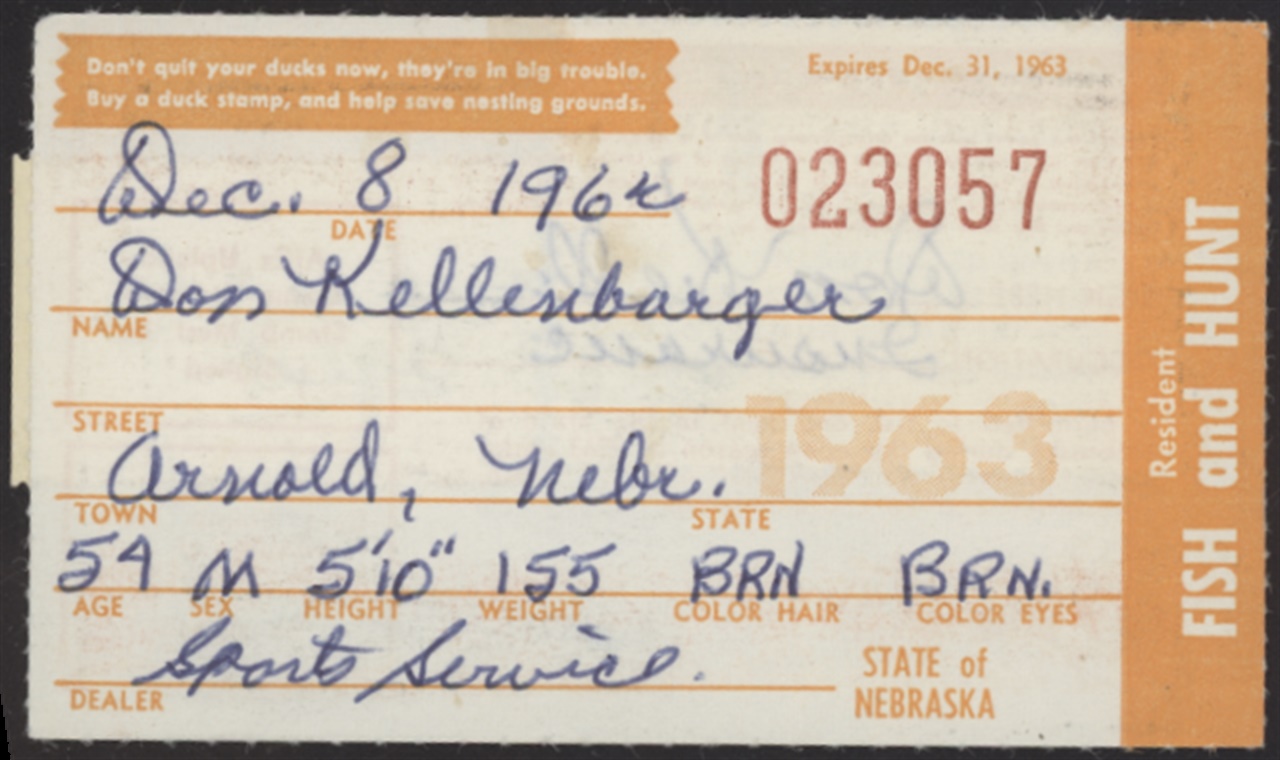 Don't quit your ducks now, they're in big trouble.
Buy a duck stamp, and help save nesting grounds.
Expires Dec. 31, 1963
023057
Dec. 8 1962
DATE
Don Kellenbarger
NAME
STREET
1963
Arnold, Nebr.
TOWN STATE
54 M 5'10" 155 BRN BRN.
AGE SEX HEIGHT WEIGHT COLOR HAIR COLOR EYES
Sports Service.
DEALER
STATE of
NEBRASKA
Resident
FISH and HUNT